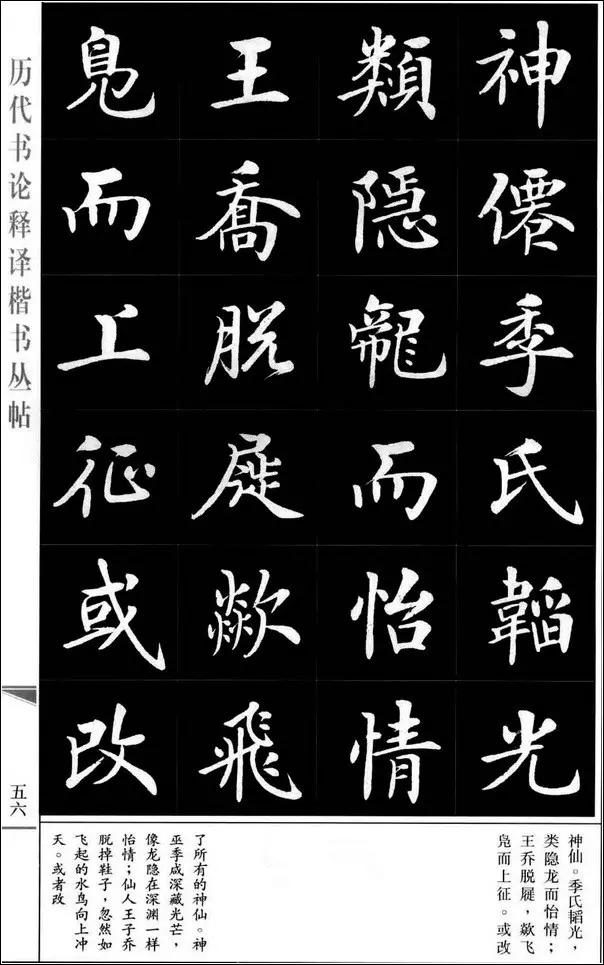 神僊季氏韜光
類隱龍而怡情
王喬脫屣歘飛
鳧而上征或改
神仙。季氏韬光，
类隐龙而怡情；
王乔脱屣，歘飞
凫而上征。或改
了所有的神仙。神
巫季咸深藏光芒，
像龙隐在深渊一样
怡情；仙人王子乔
脱掉鞋子，忽然如
飞起的水鸟向上冲
天。或者改
历代书论释译楷书丛帖
五六